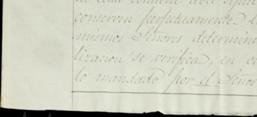 conserven perfectamente
mismos Señores determin
lizacion se verifica, en
lo mandado por el Señor